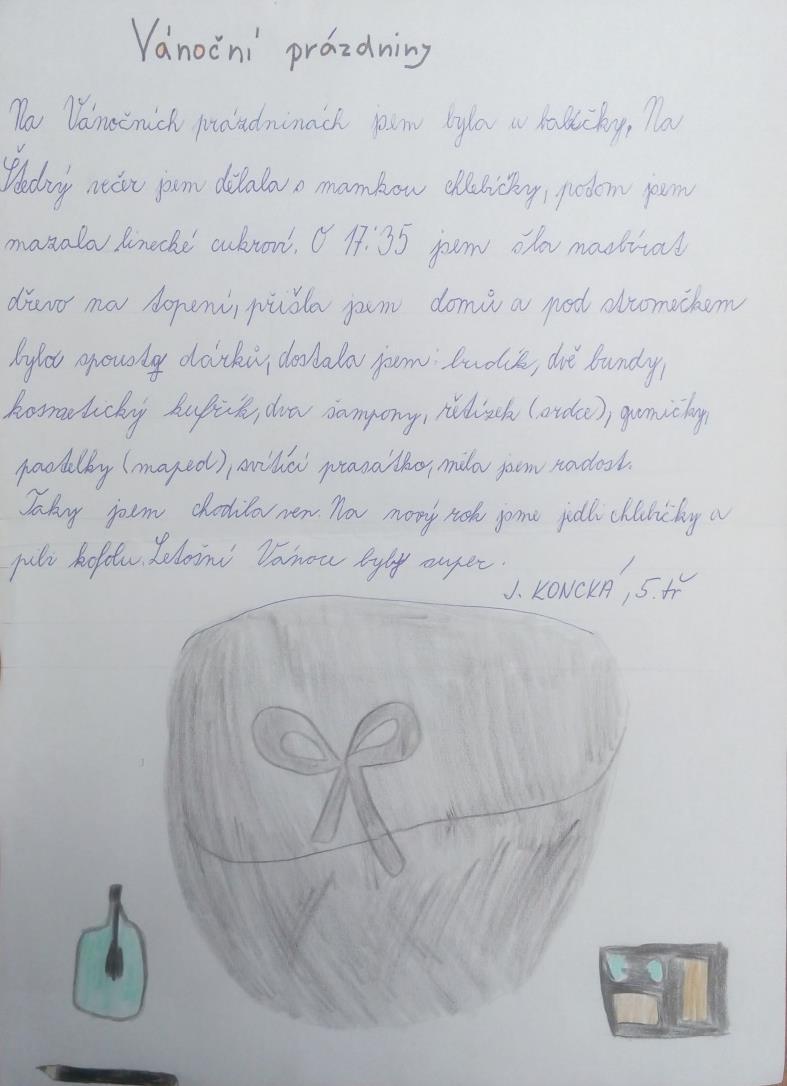 Vánoční prázdniny
Na Vánočních prázdninách jsem byla u babičky. Na
Štedrý večer jsem dělala s mamkou chlebíčky, potom jsem
mazala linecké cukroví. O 17:35 jsem šla nasbírat
dřevo na topení, přišla jsem domů a pod stromečkem
bylo spousty dárků, dostala jsem: budík, dvě bundy,
kosmetický kufřík, dva šampony, řětízek (srdce), gumičky,
pastelky (maped), svítící prasátko, měla jsem radost.
Taky jsem chodila ven. Na nový rok jsme jedli chlebíčky a
pili kofolu. Letošní Vánoce byly super.
J. KONCKÁ, 5. tř